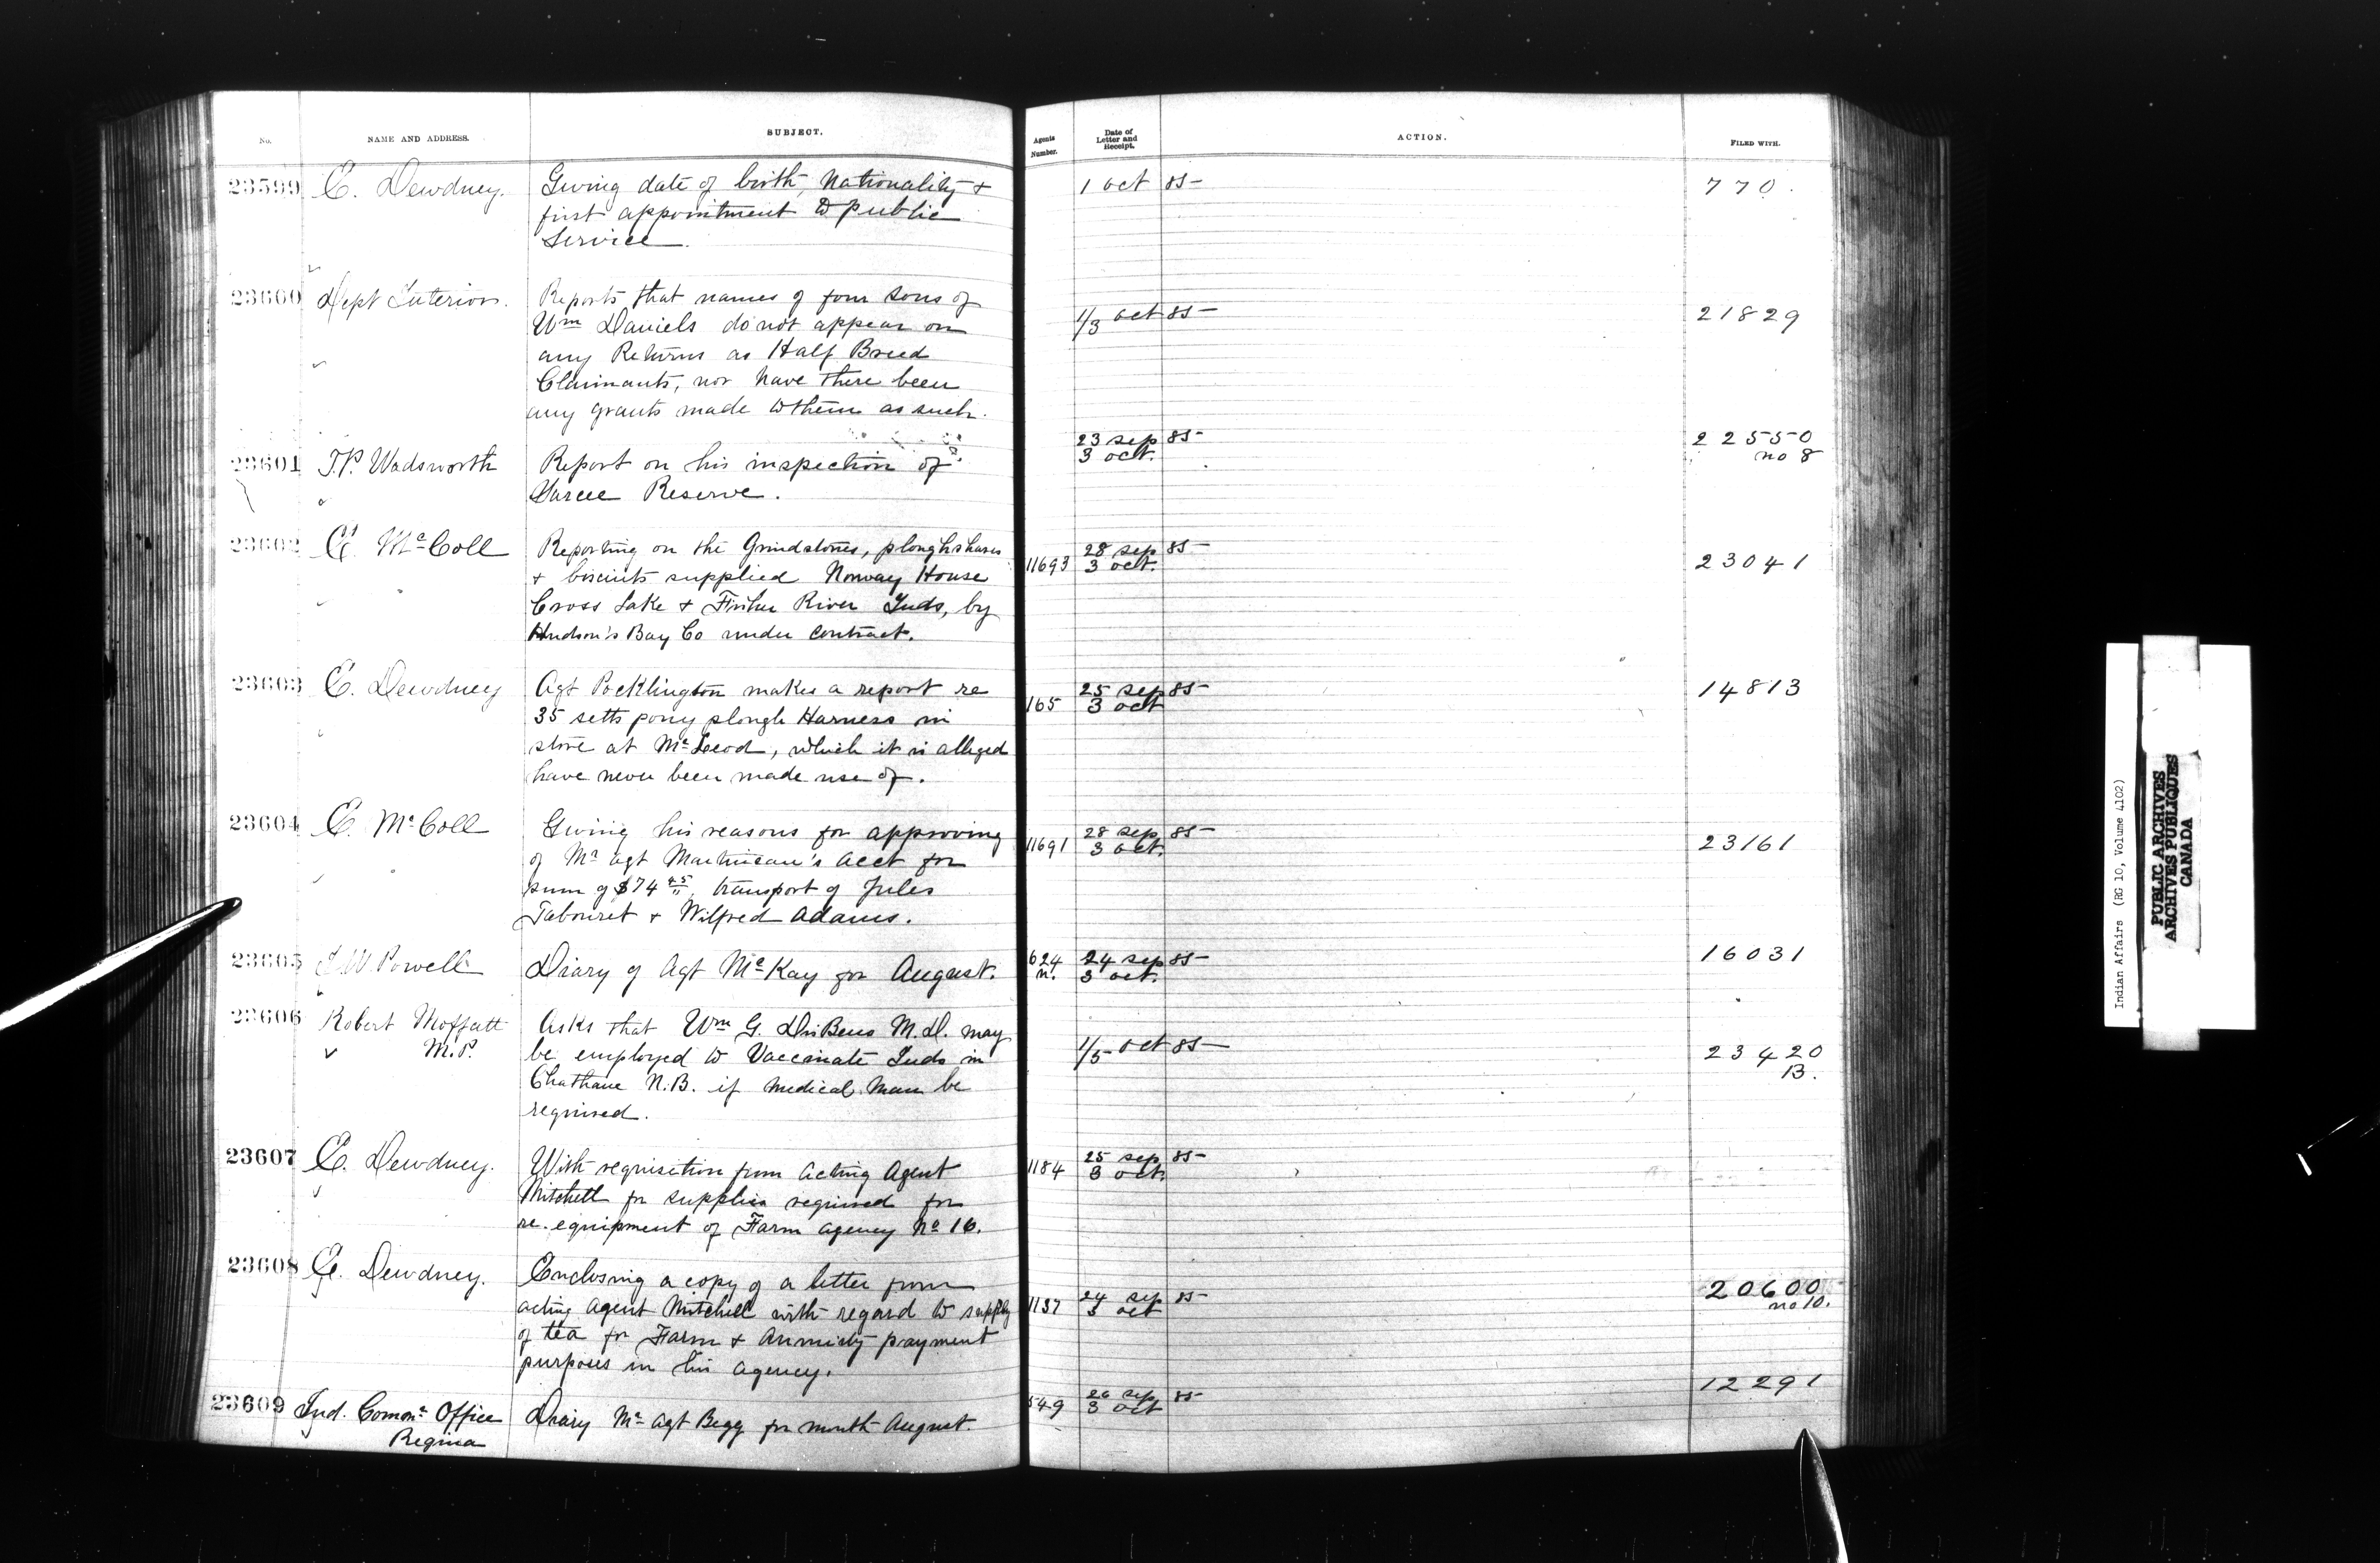 No. NAME AND ADDRESS. SUBJECT. Agents Number. Date of Letter and Receipt. ACTION. FILED WITH.
23599 E. Dewdney. Giving date of birth, Nationality + 1 Oct 85 770.
first appointment to public
Service.
23600 Dept Interior. Reports that names of four sons of
Wm Daniels do not appear on 1/3 Oct 85 21829
any Returns as Half Breed
Claimants, nor have there been
any grants made to them as such.
23601 T.P. Wadsworth Report on his inspection of 23 Sep 85 22550
Sarcee Reserve. 3 Oct. no 8
23602 E. McColl Reporting on the Grindstones, ploughshares 11693 28 Sep 85 23041
+ biscuits supplied Norway House 3 Oct.
Cross Lake + Fisher River Inds, by
Hudson's Bay Co under contract.
23603 E. Dewdney Agt Pocklington makes a report re 165 25 Sep 85 14813
35 setts pony plough Harness in 3 Oct
store at McLeod, which it is alleged
have never been made use of.
23604 E. McColl Giving his reasons for approving 11691 28 Sep 85 23161
of Mr Agt Martineau's acct for 3 Oct.
sum of $74 45, transport of Jules
Tabouret + Wilfred Adams.
23605 I W Powell Diary of Agt McKay for August. 624 24 Sep 85 16031
n. 3 Oct.
23606 Robert Moffatt Asks that Wm G. M.D. may
M.P. be employed to Vaccinate Inds in 1/5 Oct 85 23420
Chatham N.B. if medical man be B.
required.
23607 E. Dewdney. With requisition from Acting Agent 1184 25 Sep 85
Mitchell for supplies required for 3 Oct.
re-equipment of Farm agency No 16.
23608 E. Dewdney. Enclosing a copy of a letter from 20600
acting Agent Mitchell with regard to supply 1137 24 Sep 85 no 10.
of tea for Farm + Annuity payment 3 Oct
purposes in his agency.
23609 Ind. Comnr Office Diary Mr Agt Begg for month August. 549 26 Sep 85 12291
Regina 3 Oct
Indian Affairs (RG 10, Volume 4102)
PUBLIC ARCHIVES
ARCHIVES PUBLIQUES
CANADA